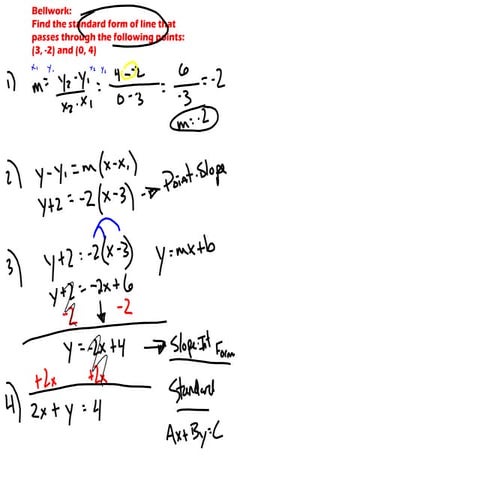 Bellwork:
Find the standard form of line that
passes through the following points:
(3, -2) and (0, 4)
x₁ y₁ x₂ y₂
1) m = y₂-y₁ / x₂-x₁ = 4--2 / 0-3 = 6 / -3 = -2
m=-2
2) y-y₁ = m(x-x₁)
y+2 = -2(x-3) → Point-Slope
3) y+2 = -2(x-3) y=mx+b
y+2 = -2x+6
-2 -2
y = -2x+4 → Slope-Int Form
+2x +2x
4) 2x+y = 4
Standard
Ax+By=C